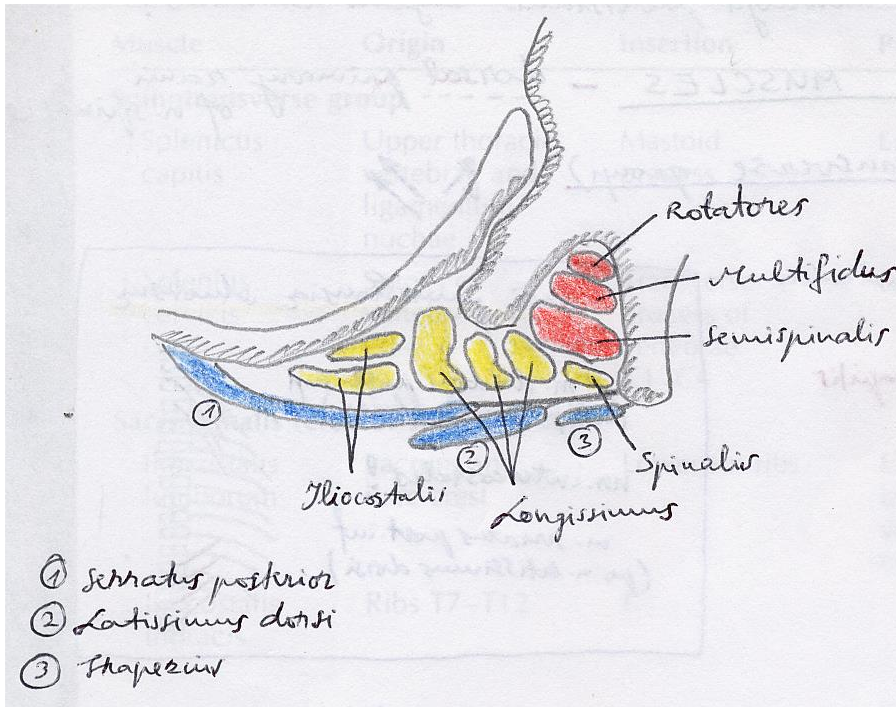 Rotatores
Multifidus
Semispinalis
①
②
③
Spinalis
Iliocostalis
Longissimus
① Serratus posterior
② Latissimus dorsi
③ Trapezius